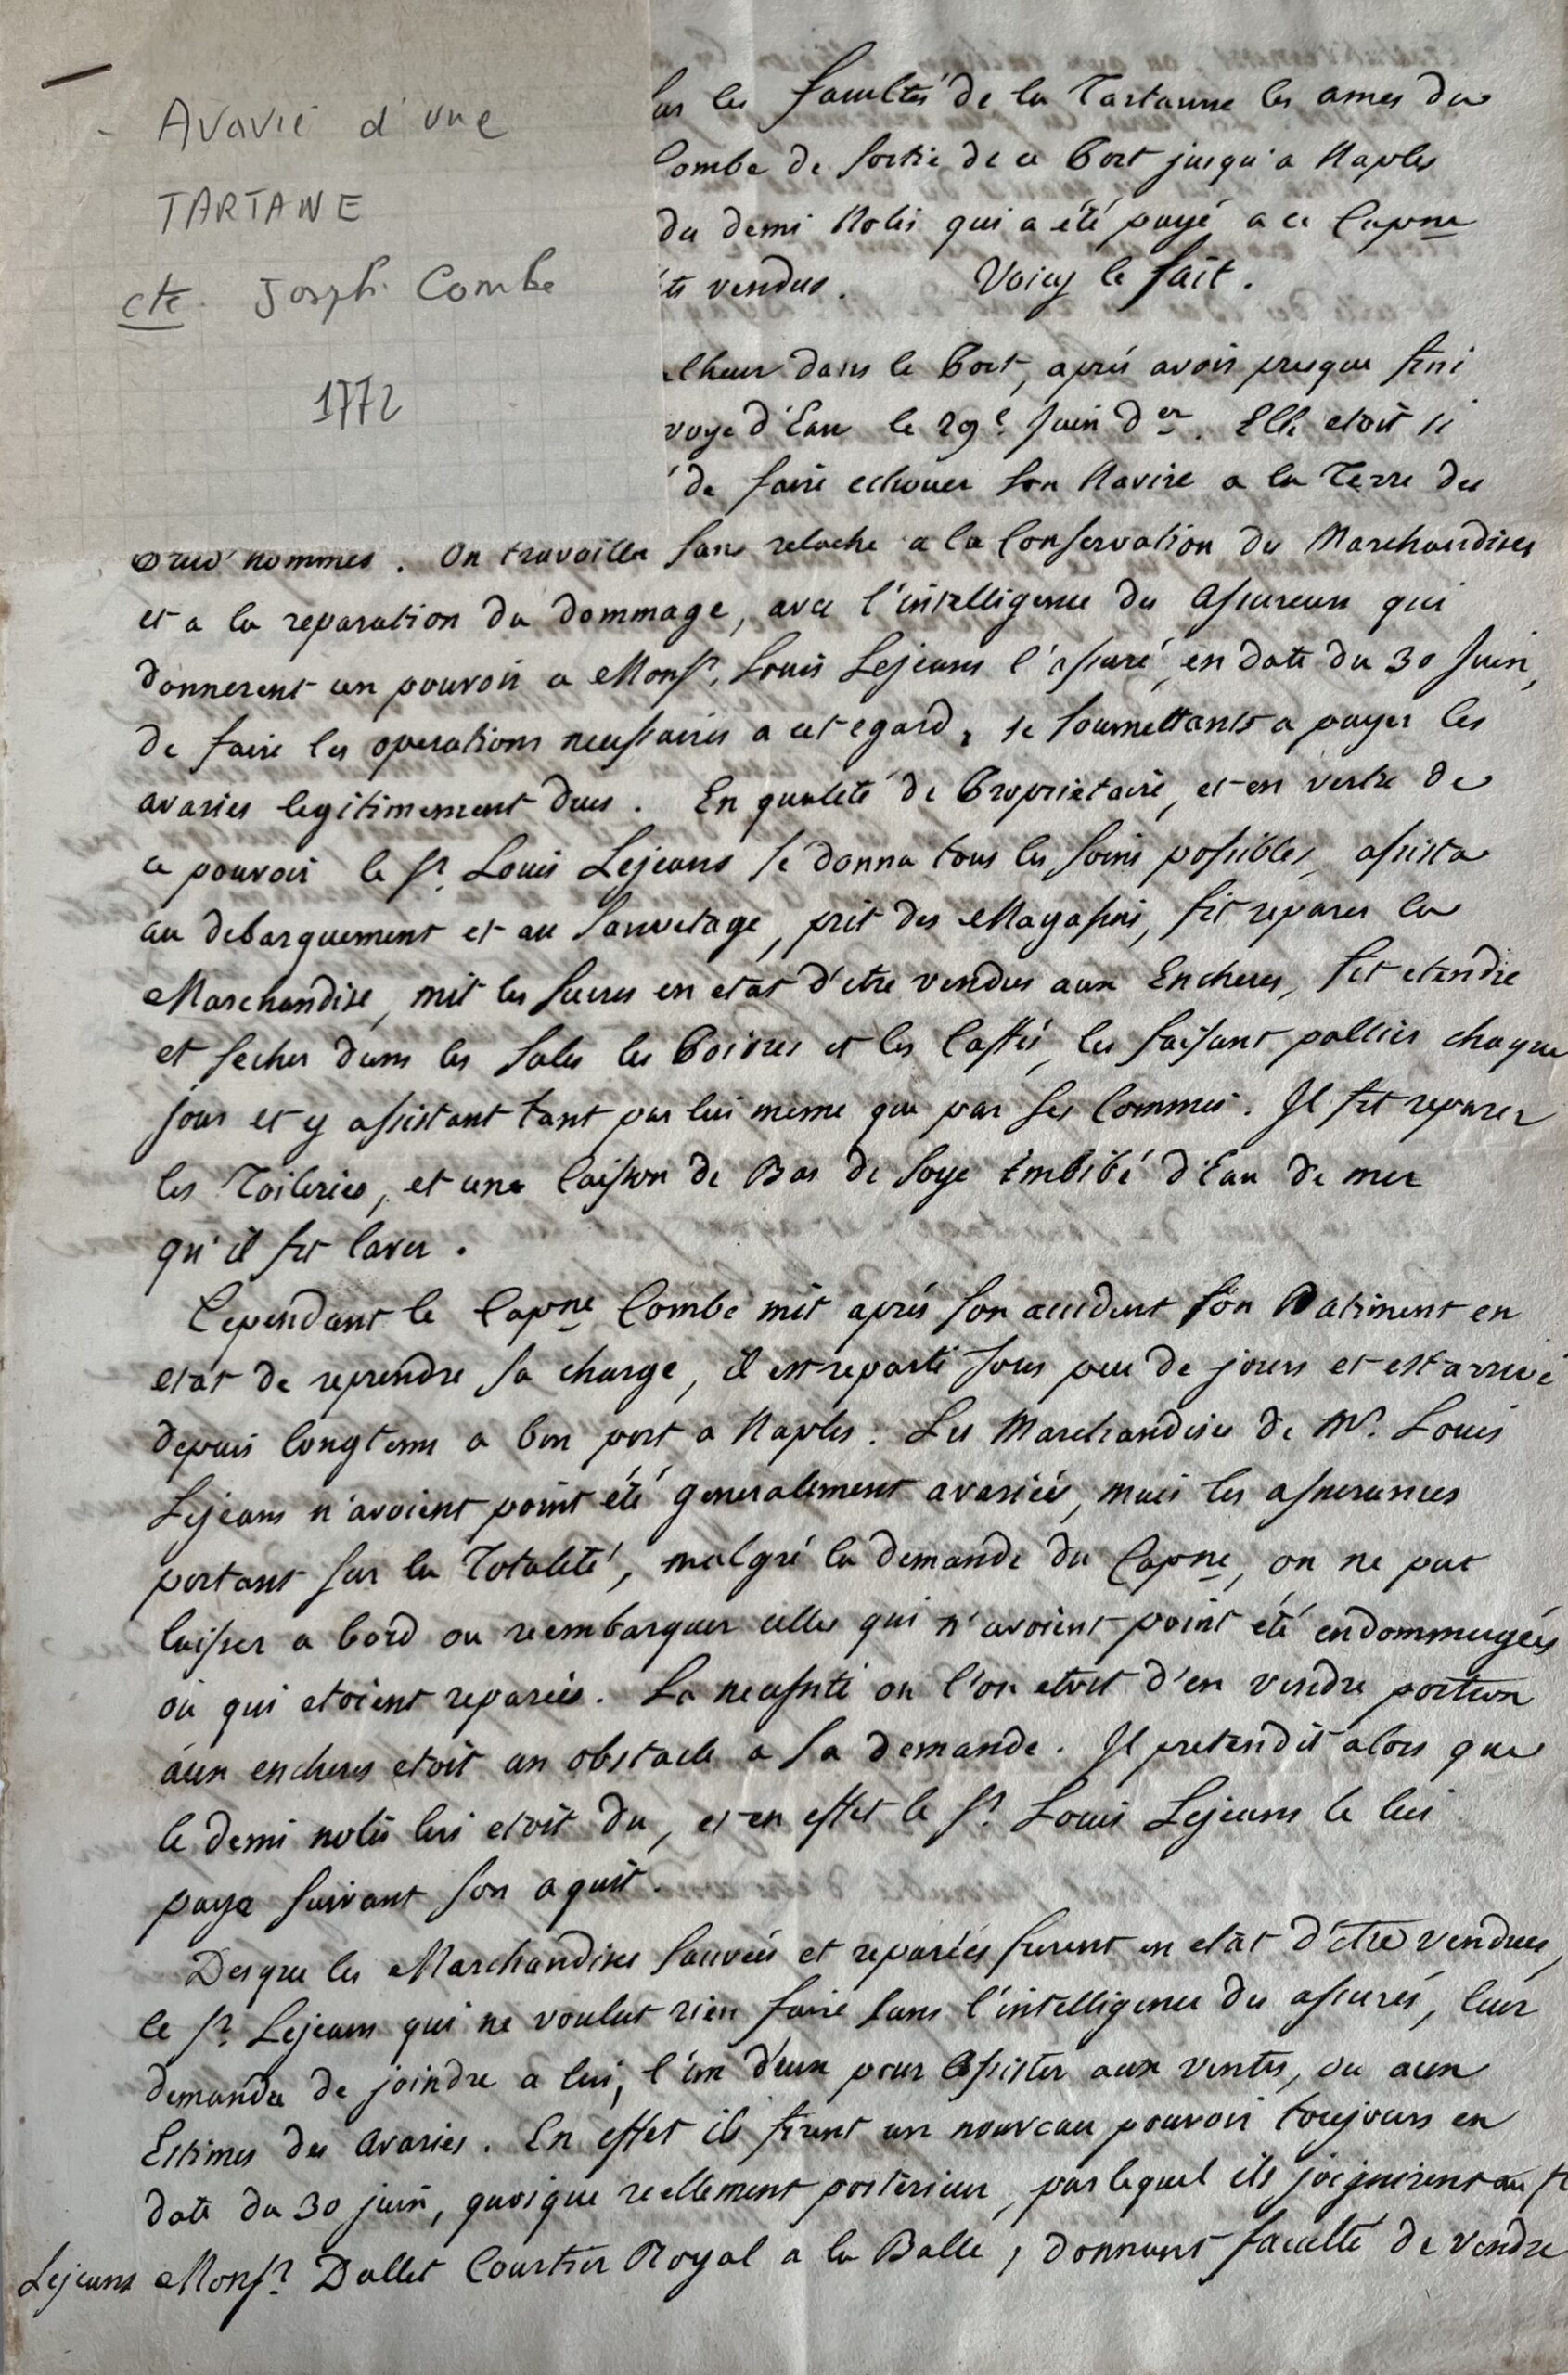 Avavie d'une
TARTANE
cte Joseph Combe
1772
sur les facultés de la Tartanne les ames du
Combe de sortie de ce Port jusqu'a Naples
du demi Nolis qui a été payé a ce Capne
vendus. Voicy le fait.
lheur dans le Port, aprés avoir presque fini
voye d'Eau le 29e Juin der. Elle etoit si
de faire echouer son Navire a la Terre des
Prud'hommes. On travailla sans relache a la Conservation des Marchandises
et a la reparation du dommage, avec l'intelligence des assureurs qui
donnerent un pouvoir a Monsr. Louis Lejeans l'assuré, en date du 30 Juin,
de faire les operations necessaires a cet egard, se soumettants a payer les
avaries legitimement dues. En qualité de Proprietaire, et en vertu de
ce pouvoir le Sr. Louis Lejeans se donna tous les soins possibles, assista
au debarquement et au sauvetage, prit des Magasins, fit reparer la
Marchandise, mit les sucres en etat d'etre vendus aux Encheres, fit etendre
et secher dans les sales les Poivres et les Caffés, les faisant pallier chaque
jour et y assistant tant par lui meme que par ses Commis. Il fit reparer
les Toileries, et une Caisson de Bas de soye imbibé d'Eau de mer
qu'il fit laver.
Cependant le Capne Combe mit aprés son accident son Batiment en
etat de reprendre sa charge, il est reparti sous peu de jours et est arrivé
depuis longtems a bon port a Naples. Les Marchandises de Mr. Louis
Lejeans n'avoient point été generalement avariées, mais les assurances
portant sur la Totalité, malgré la demande du Capne, on ne put
laisser a bord ou reembarquer celles qui n'avoient point été endommagées
ou qui etoient reparées. La necessité ou l'on etoit d'en vendre portion
aux encheres etoit un obstacle a sa demande. Il pretendit alors que
le demi nolis lui etoit du, et en effet le Sr. Louis Lejeans le lui
paya suivant son aquit.
Desque les Marchandises sauvées et reparées furent en etat d'être vendues,
le Sr. Lejeans qui ne voulut rien faire sans l'intelligence des assurés, leur
demanda de joindre a lui, l'un d'eux pour assister aux ventes, ou aux
Estimes des avaries. En effet ils firent un nouveau pouvoir toujours en
date du 30 juin, quoique reellement posterieur, par lequel ils joignirent au Sr
Lejeans Monsr. Dallet Courtier Royal a la Balle, donnant faculté de vendre